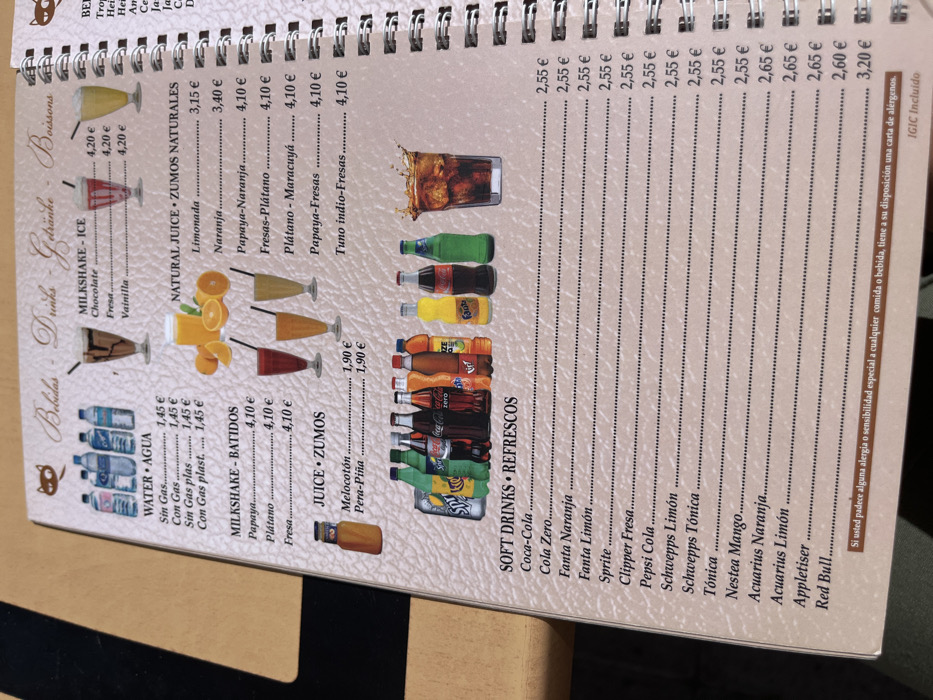 Bebidas - Drinks - Getränke - Boissons
WATER • AGUA
Sin Gas........ 1,45 €
Con Gas ...... 1,45 €
Sin Gas plas ..... 1,45 €
Con Gas plast. ... 1,45 €
MILKSHAKE - ICE
Chocolate .................. 4,20 €
Fresa ........................ 4,20 €
Vainilla ..................... 4,20 €
MILKSHAKE - BATIDOS
Papaya.................. 4,10 €
Plátano ................ 4,10 €
Fresa..................... 4,10 €
JUICE • ZUMOS
Melocotón ...................... 1,90 €
Pera-Piña ....................... 1,90 €
NATURAL JUICE • ZUMOS NATURALES
Limonada ................... 3,15 €
Naranja....................... 3,40 €
Papaya-Naranja ......... 4,10 €
Fresas-Plátano ........... 4,10 €
Plátano - Maracuyá .... 4,10 €
Papaya-Fresas ............ 4,10 €
Tuno indio-Fresas ....... 4,10 €
SOFT DRINKS • REFRESCOS
Coca-Cola .................... 2,55 €
Cola Zero..................... 2,55 €
Fanta Naranja .............. 2,55 €
Fanta Limón ................ 2,55 €
Sprite .......................... 2,55 €
Clipper Fresa ............... 2,55 €
Pepsi Cola ................... 2,55 €
Schwepps Limón .......... 2,55 €
Schwepps Tónica .......... 2,55 €
Tónica ......................... 2,55 €
Nestea Mango.............. 2,65 €
Acuarius Naranja......... 2,65 €
Acuarius Limón ........... 2,65 €
Appletiser ................... 2,60 €
Red Bull...................... 3,20 €
Si usted padece alguna alergia o sensibilidad especial a cualquier comida o bebida, tiene a su disposición una carta de alérgenos.
IGIC Incluido